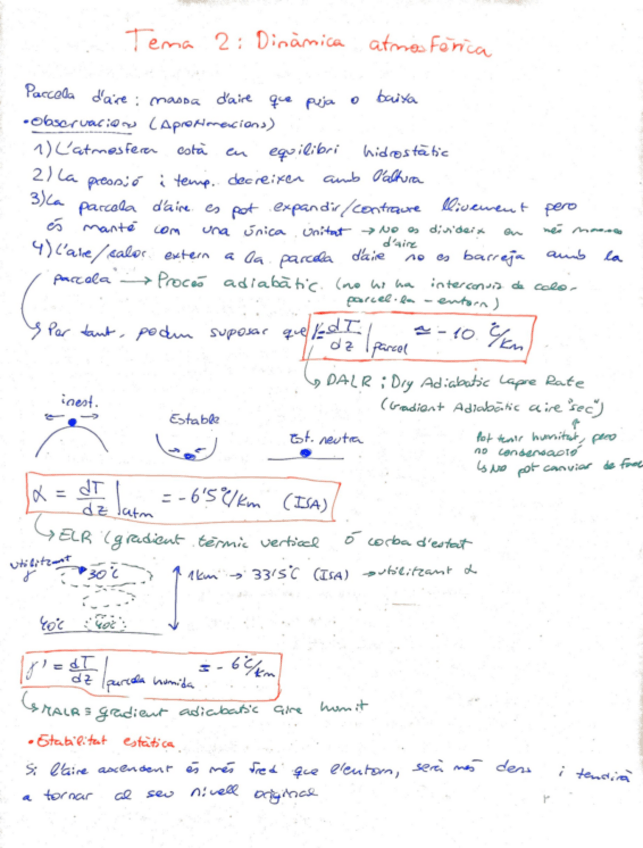 Tema 2: Dinàmica atmosfèrica
Parcela d'aire: massa d'aire que puja o baixa
• Observacions (Aproximacions)
1) L'atmosfera està en equilibri hidrostàtic
2) La pressió i temp. decreixen amb l'altura
3) La parcela d'aire es pot expandir/contraure lliurement però
és manté com una única unitat → No es divideix en més masses
d'aire
4) L'aire/calor extern a la parcela d'aire no es barreja amb la
parcela → Procés adiabàtic (no hi ha intercanvis de calor
parcel·la - entorn)
↳ Per tant, podem suposar que γ = dT/dz | parcel ≃ -10 °C/Km
↳ DALR: Dry Adiabatic Lapse Rate
(Gradient Adiabàtic aire "sec")
Pot tenir humitat, pero
no condensació
↳ No pot canviar de fase
inest.
Estable
Est. neutra
α = dT/dz | atm = -6'5 °C/Km (ISA)
↳ ELR (gradient tèrmic vertical ó corba d'estat
utilitzant γ
30°C
1km → 33'5°C (ISA) → utilitzant α
40°C
40°C
γ' = dT/dz | parcela humida = -6 °C/Km
↳ MALR ≡ gradient adiabatic aire humit
• Estabilitat estàtica
Si l'aire ascendent és més fred que l'entorn, serà més dens i tendirà
a tornar al seu nivell original